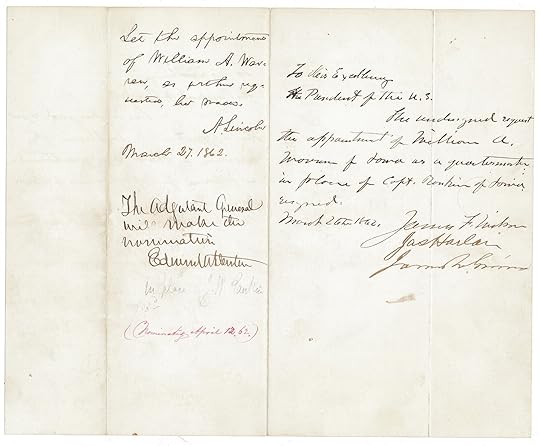 Let the appointment
of William A. War-
ren, as within re-
quested, be made.
A. Lincoln
March 27. 1862.
The Adjutant General
will make the
nomination
Edwin M Stanton
in place of
(Nominated April 12. 62.)
To His Excellency
The President of the U.S.
The undersigned request
the appointment of William A.
Warren of Iowa as a quartermaster
in place of Capt. Rankin of Iowa
resigned.
March 26th 1862.
James F. Wilson
Jas Harlan
James W. Grimes